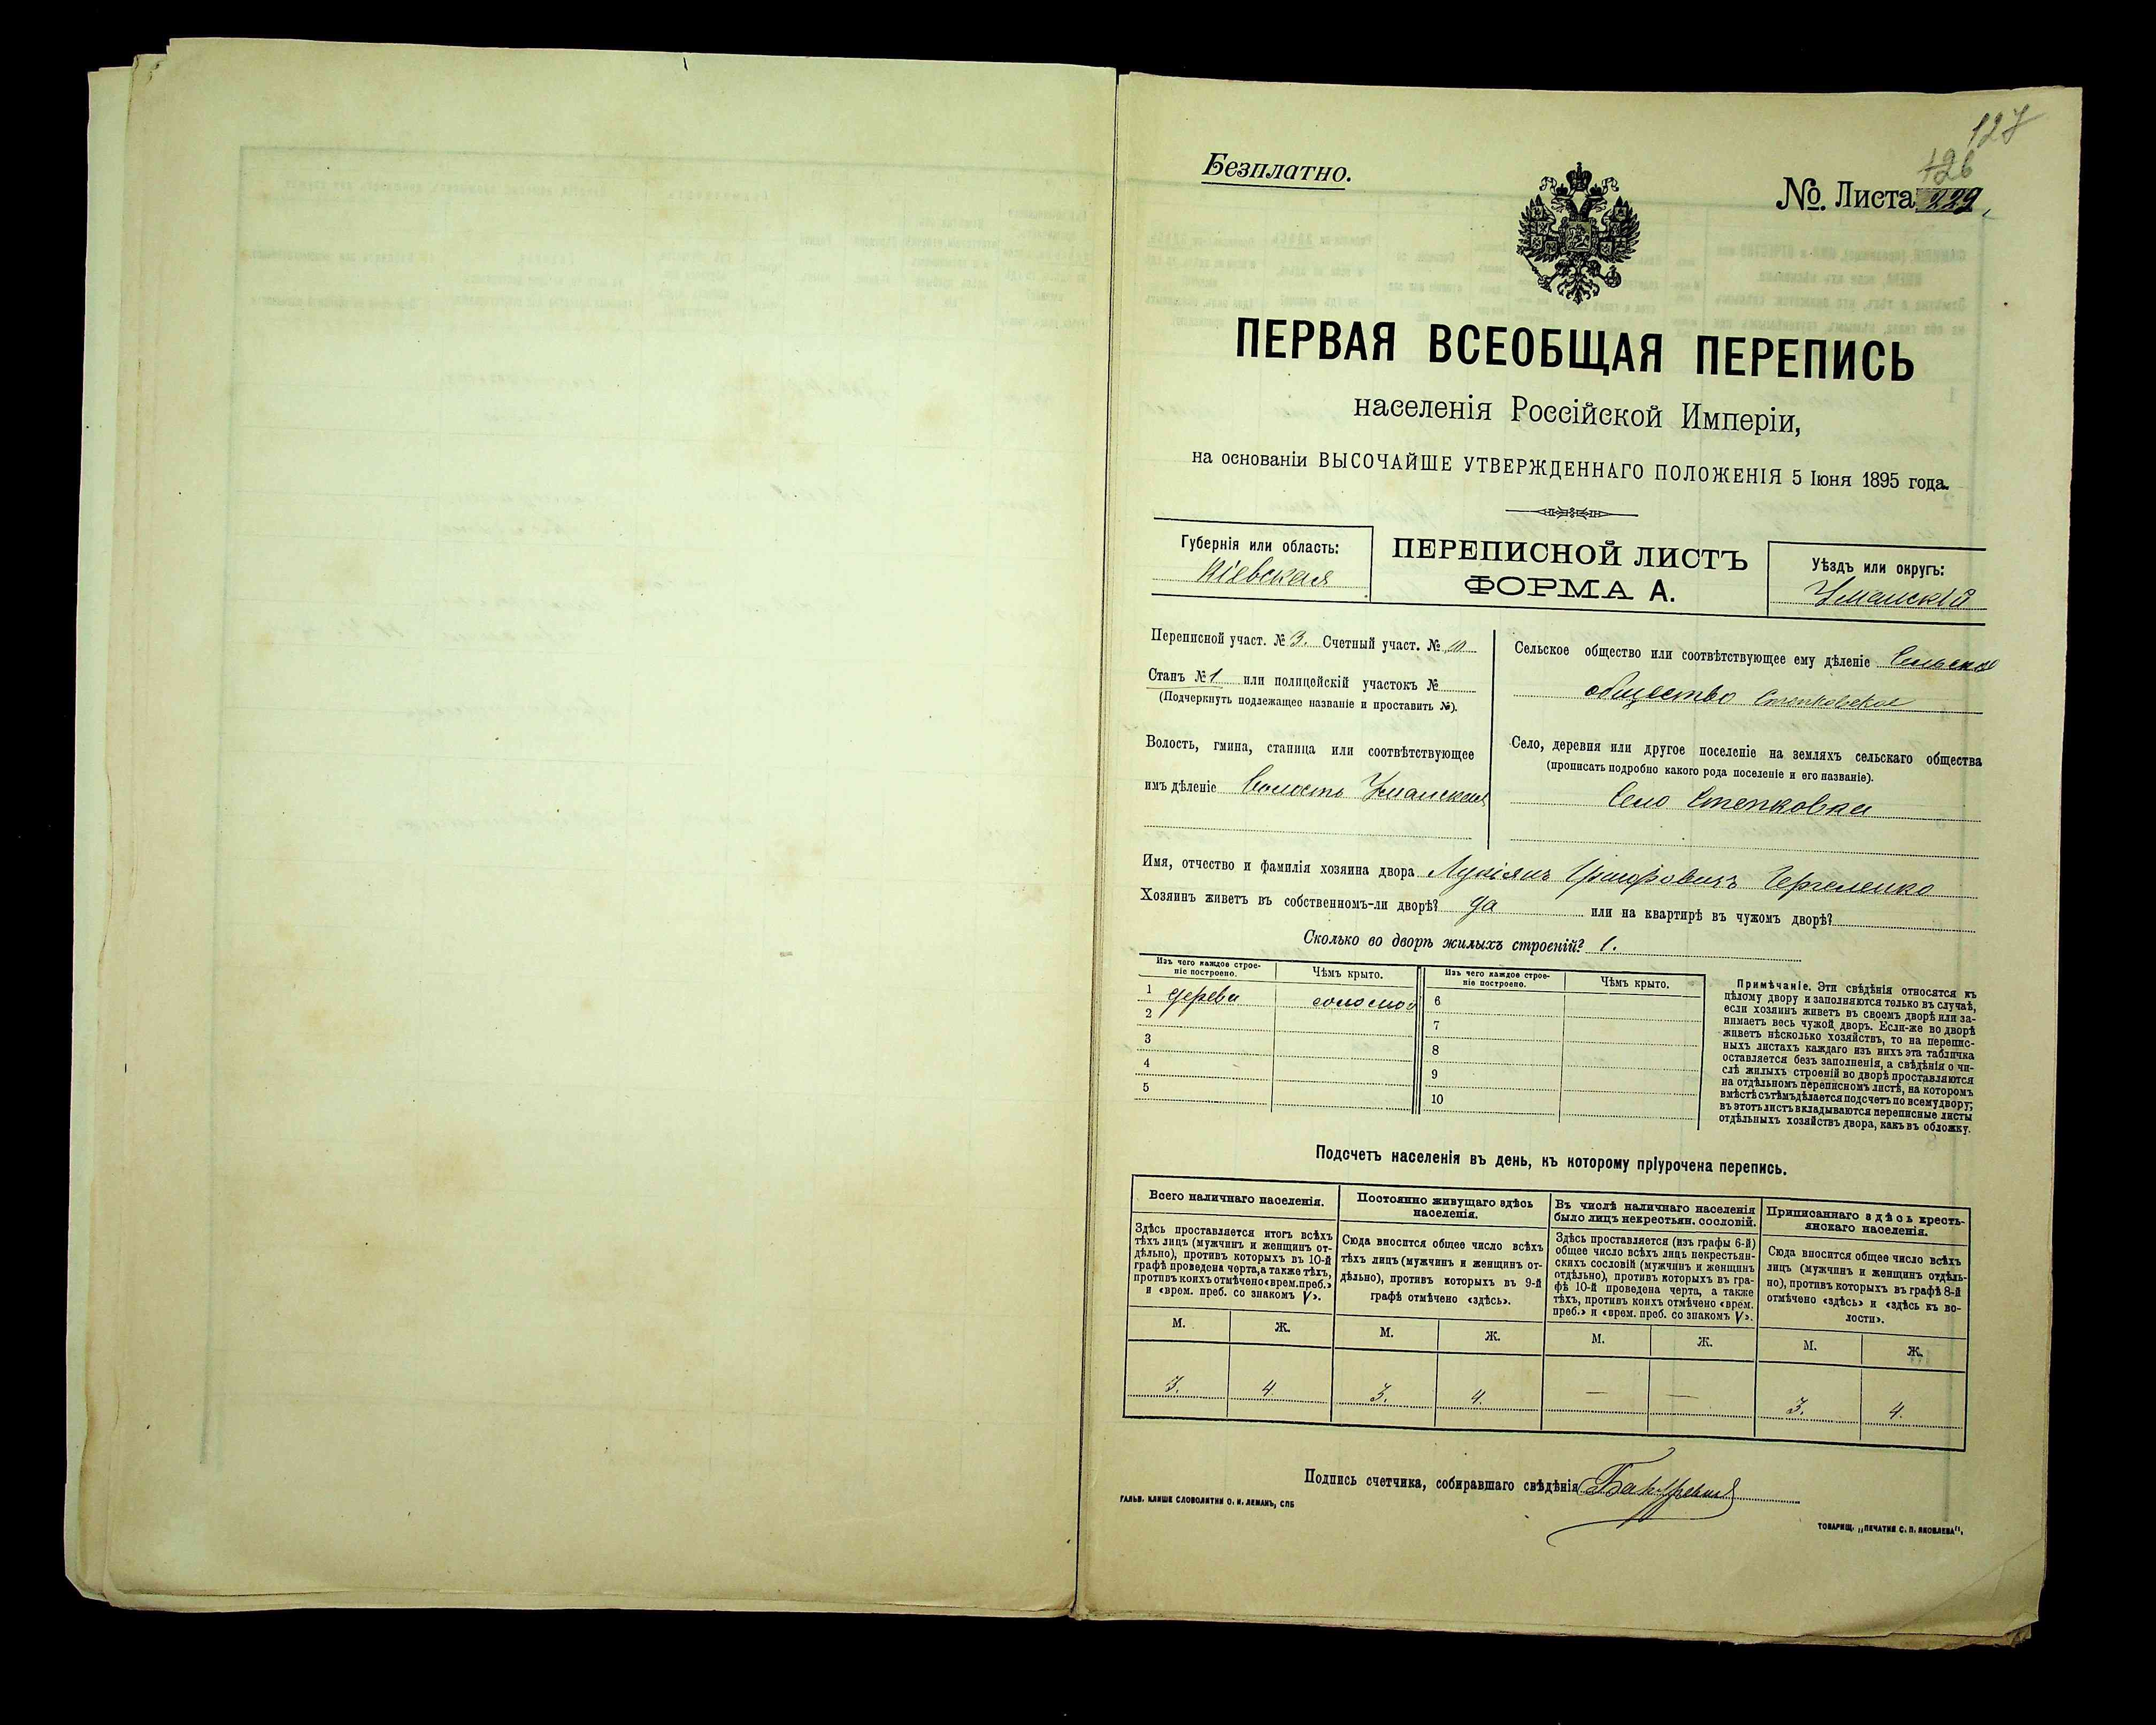 127
126
Безплатно.
№. Листа 229
ПЕРВАЯ ВСЕОБЩАЯ ПЕРЕПИСЬ
населенія Россійской Имперіи,
на основаніи ВЫСОЧАЙШЕ УТВЕРЖДЕННАГО ПОЛОЖЕНІЯ 5 Іюня 1895 года.
Губернія или область:
Кіевская
ПЕРЕПИСНОЙ ЛИСТЪ
ФОРМА А.
Уѣздъ или округъ:
Уманскій
Переписной участ. № 3. Счетный участ. № 10
Станъ № 1 или полицейскій участокъ №
(Подчеркнуть подлежащее названіе и проставить №).
Волость, гмина, станица или соотвѣтствующее
имъ дѣленіе Волость Уманская
Сельское общество или соотвѣтствующее ему дѣленіе Сельское
общество Степковское
Село, деревня или другое поселеніе на земляхъ сельскаго общества
(прописать подробно какого рода поселеніе и его названіе).
Село Степковка
Имя, отчество и фамилія хозяина двора Лукіянъ
Хозяинъ живетъ въ собственномъ-ли дворѣ? да или на квартирѣ въ чужомъ дворѣ?
Сколько во дворѣ жилыхъ строеній? 1.
Изъ чего каждое строе-
ніе построено.
Чѣмъ крыто.
Изъ чего каждое строе-
ніе построено.
Чѣмъ крыто.
1 дерева соломой 6
2 7
3 8
4 9
5 10
Примѣчаніе. Эти свѣдѣнія относятся къ
цѣлому двору и заполняются только въ случаѣ,
если хозяинъ живетъ въ своемъ дворѣ или за-
нимаетъ весь чужой дворъ. Если-же во дворѣ
живетъ нѣсколько хозяйствъ, то на перепис-
ныхъ листахъ каждаго изъ нихъ эта табличка
оставляется безъ заполненія, а свѣдѣнія о чи-
слѣ жилыхъ строеній во дворѣ проставляются
на отдѣльномъ переписномъ листѣ, на которомъ
вмѣстѣ съ тѣмъ дѣлается подсчетъ по всему двору;
въ этотъ листъ вкладываются переписные листы
отдѣльныхъ хозяйствъ двора, какъ въ обложку.
Подсчетъ населенія въ день, къ которому пріурочена перепись.
Всего наличнаго населенія.
Здѣсь проставляется итогъ всѣхъ
тѣхъ лицъ (мужчинъ и женщинъ от-
дѣльно), противъ которыхъ въ 10-й
графѣ проведена черта, а также тѣхъ,
противъ коихъ отмѣчено «врем. преб.»
и «врем. преб. со знакомъ V».
Постоянно живущаго здѣсь
населенія.
Сюда вносится общее число всѣхъ
тѣхъ лицъ (мужчинъ и женщинъ от-
дѣльно), противъ которыхъ въ 9-й
графѣ отмѣчено «здѣсь».
Въ числѣ наличнаго населенія
было лицъ некрестьян. сословій.
Здѣсь проставляется (изъ графы 6-й)
общее число всѣхъ лицъ некрестьян-
скихъ сословій (мужчинъ и женщинъ
отдѣльно), противъ которыхъ въ гра-
фѣ 10-й проведена черта, а также
тѣхъ, противъ коихъ отмѣчено «врем.
преб.» и «врем. преб. со знакомъ V».
Приписаннаго здѣсь кресть-
янскаго населенія.
Сюда вносится общее число всѣхъ
лицъ (мужчинъ и женщинъ отдѣль-
но), противъ которыхъ въ графѣ 8-й
отмѣчено «здѣсь» и «здѣсь къ во-
лости».
М. Ж. М. Ж. М. Ж. М. Ж.
3. 4 3. 4. — — 3. 4.
Подпись счетчика, собиравшаго свѣдѣнія
ГАЛЬВ. КЛИШЕ СЛОВОЛИТНИ О. И. ЛЕМАНЪ, СПБ
ТОВАРИЩ. „ПЕЧАТНЯ С. П. ЯКОВЛЕВА",